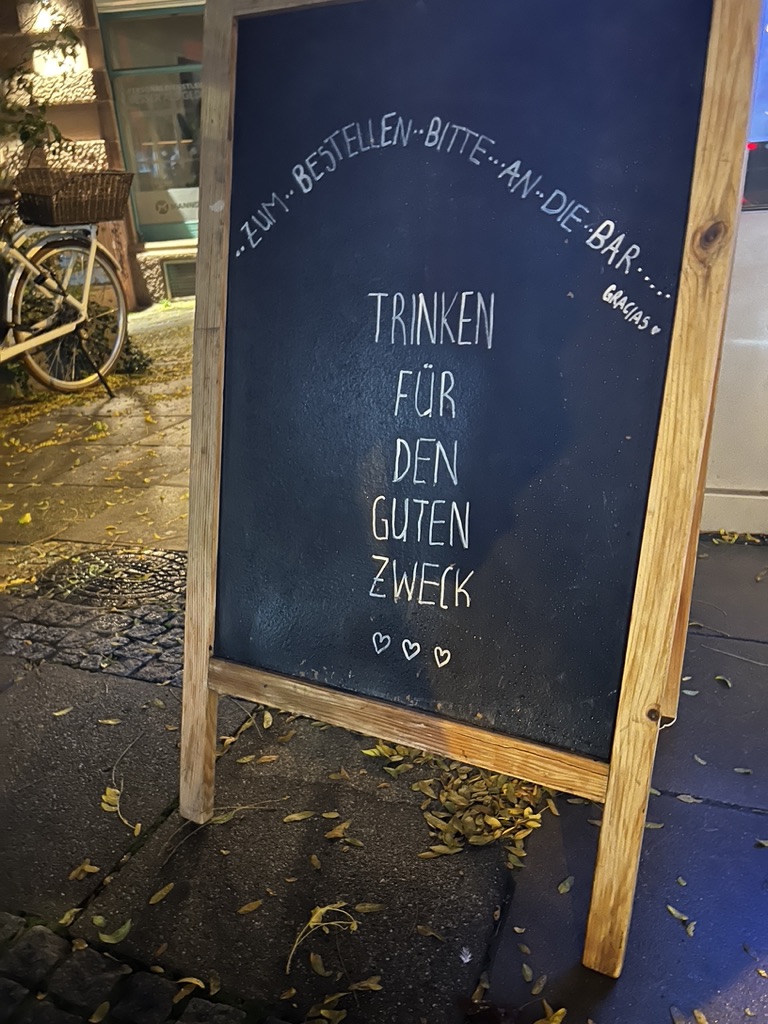 ..ZUM..BESTELLEN..BITTE...AN..DIE..BAR.....
GRACIAS ♥
TRINKEN
FÜR
DEN
GUTEN
ZWECK
♡ ♡ ♡